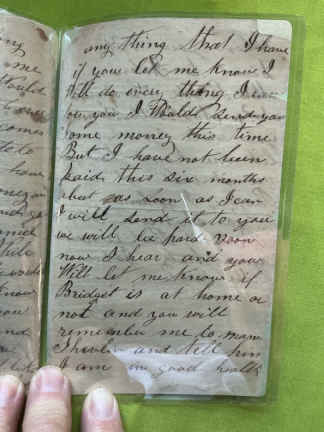 ny
me
would
comes
te to
have
any thing that I have
if you let me know I
Will do every thing I can
for you I Would send you
some money this time
But I have not been
paid this six months
but as soon as I can
I will send it to you
we will be paid soon
now I hear and you
Will let me know if
Bridget is at home or
not and you will
remember me to mam
Shevlin and tell him
I am in good health